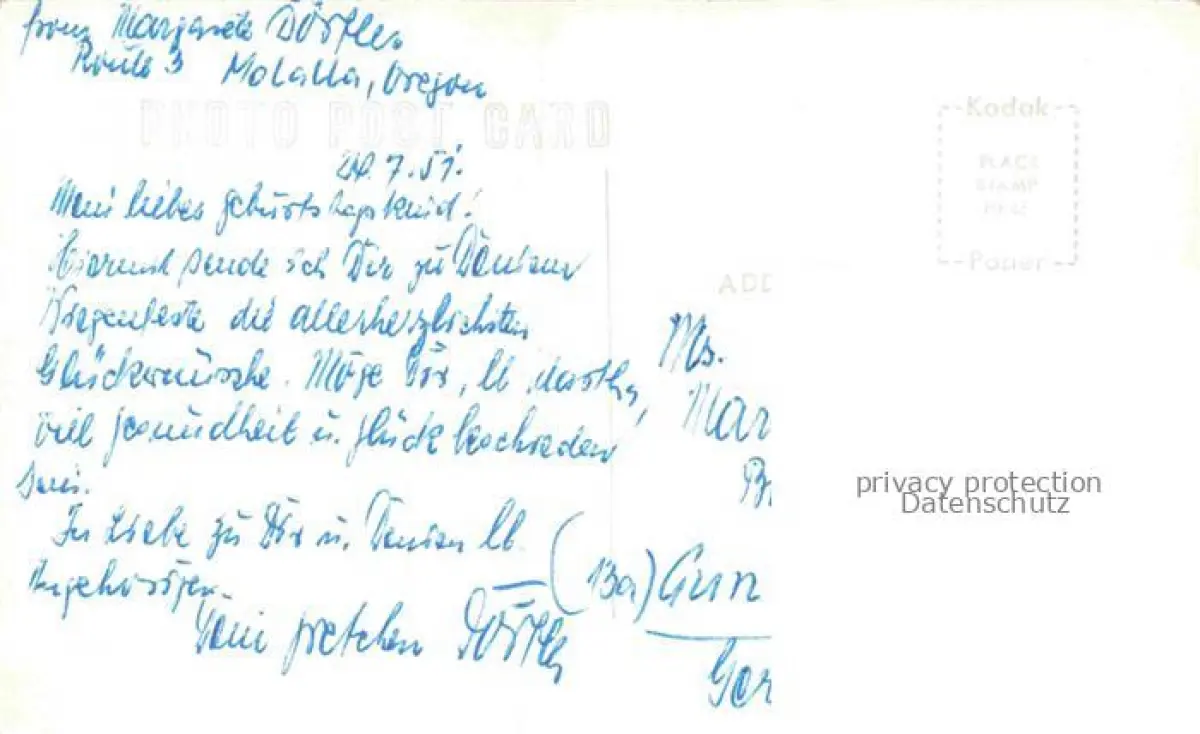 from Margarete Dörfler
Route 3 Molalla, Oregon
PHOTO POST CARD
7.51.
Mein liebes Geburtstagskind!
Hiermit sende ich Dir zu Deinem
Wiegenfeste die allerherzlichsten
Glückwünsche. Möge Dir, lb Martha,
viel Gesundheit u. Glück beschieden
sein.
In Liebe zu Dir u. Deinen lb
Angehörigen.
Dein Gretchen Dörfler
Kodak
PLACE
STAMP
HERE
Paper
ADD
Ms.
Mar
(13a) Gun
Ger
privacy protection
Datenschutz